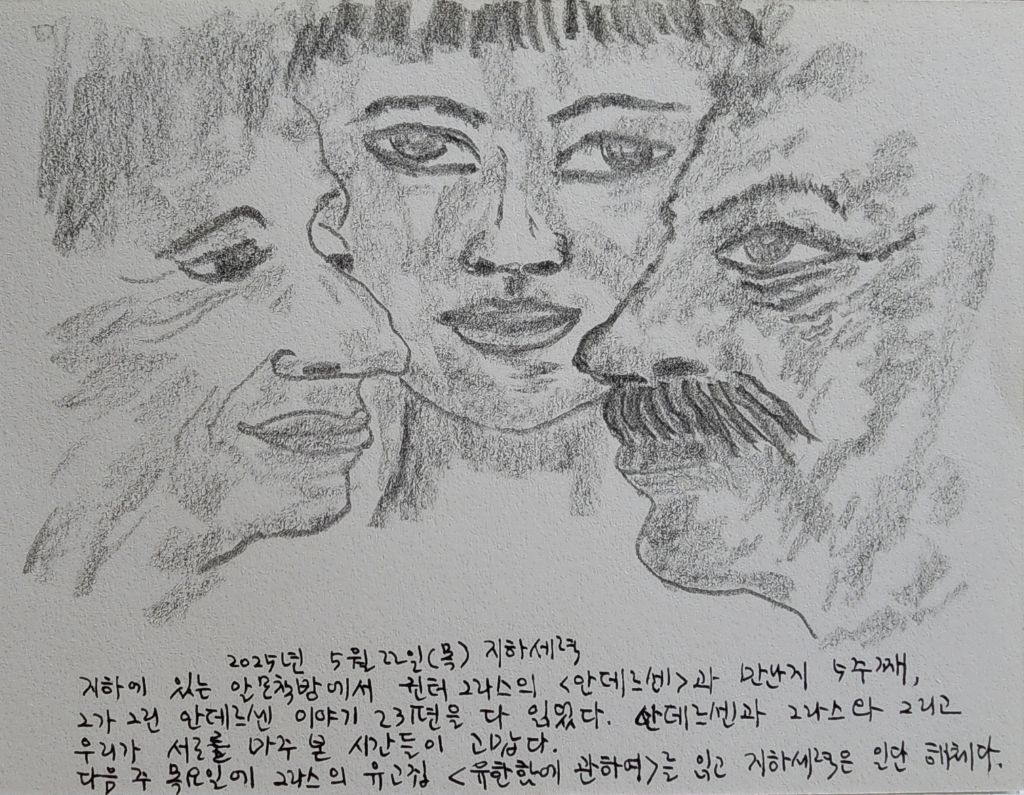 2025년 5월 22일(목) 지하세력
지하에 있는 알모책방에서 귄터 그라스의 <안데르센>과 만난지 5주째,
그가 그린 안데르센 이야기 23편을 다 읽었다. 안데르센과 그라스와 그리고
우리가 서로를 마주 본 시간들이 고맙다.
다음 주 목요일에 그라스의 유고집 <유한함에 관하여>를 읽고 지하세력은 일단 해체다.